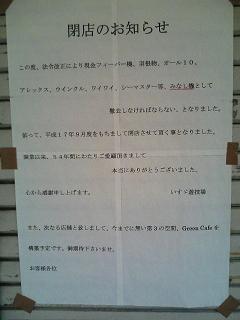 閉店のお知らせ
この度、法令改正により現金フィーバー機、羽根物、オール10。
アレックス、ウインクル、ワイワイ、シーマスター等、みなし機として
撤去しなければならない、となりました。
依って、平成17年9月度をもちまして閉店させて頂く事となりました。
開業以来、54年間にわたりご愛顧頂きまして
本当にありがとうございました。
心から感謝申し上げます。 いすゞ遊技場
また、次なる店舗と致しまして、今までに無い第3の空間、Green Cafeを
構築予定です。御期待下さいませ。
お客様各位